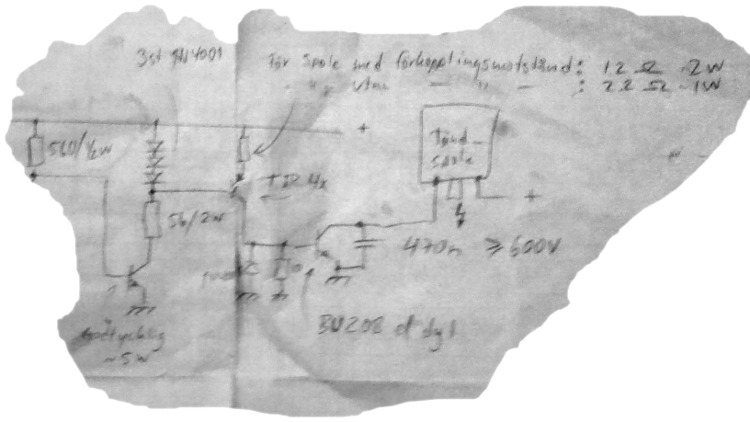 3st 1N4001
för spole med förkopplingsmotstånd: 1.2 Ω ~2W
" " utan " — : 2.2 Ω ~1W
560/½W
+
Tänd-
spole
TIP 4x
+
56/2W
470n ≥600V
10
BU208 el dyl
~5W